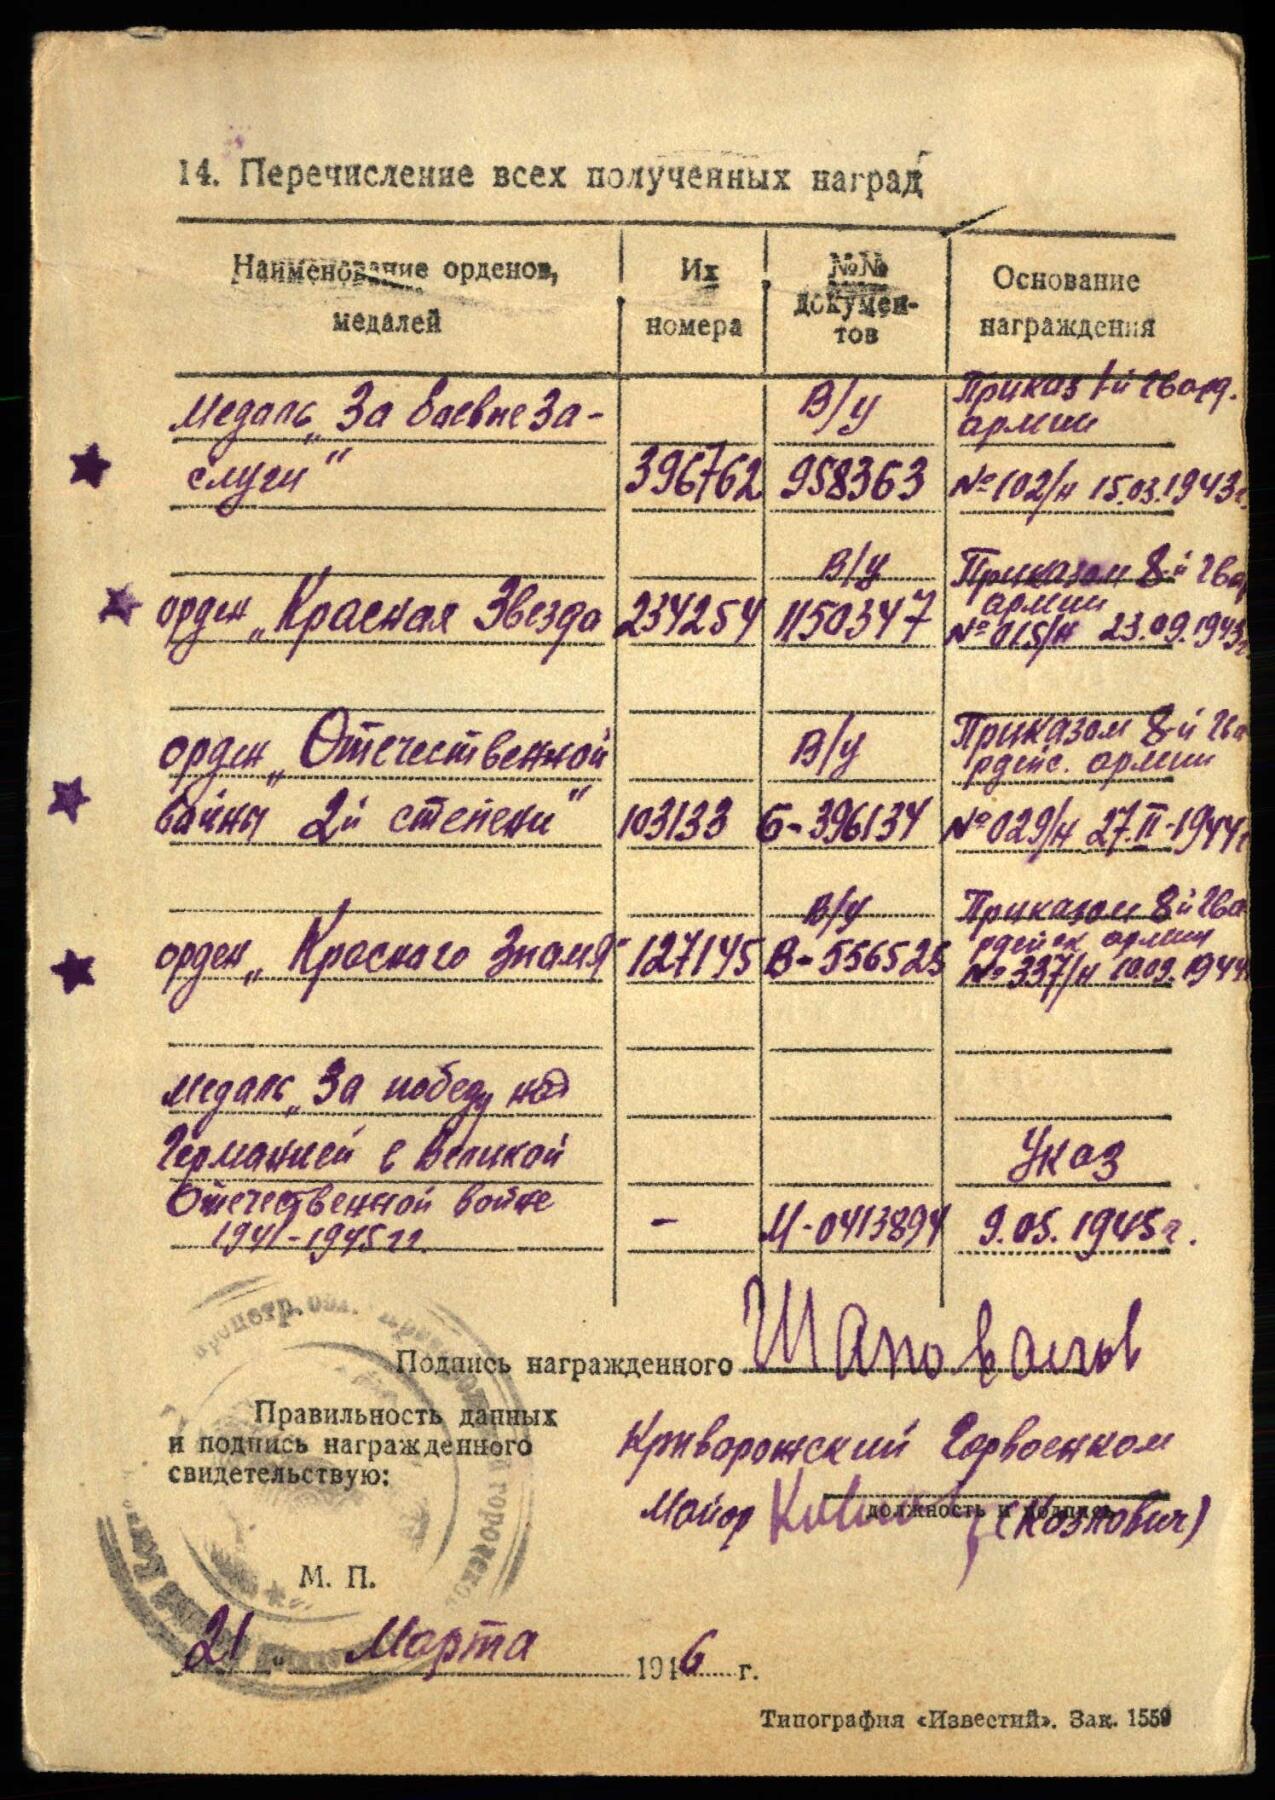 14. Перечисление всех полученных наград
Наименование орденов, медалей
Их номера
№№ документов
Основание награждения
Медаль „За боевые За-
слуги" 396762 В/у 958363 Приказ 1-й Гвард. армии №102/н 15.03.1943г.
орден „Красная Звезда 234254 В/у 1150347 Приказом 8-й Гвар армии №015/н 23.09.1943г.
орден „Отечественной
войны 2й степени" 103133 В/у Б-396134 Приказом 8-й Гва рдейс. армии №029/н 27.II-1944г
орден „Красного Знамя" 127145 В/у В-556525 Приказом 8й Гва рдейск армии №337/н 10.09.1944
Медаль „За победу над
Германией в Великой
Отечественной войне
1941-1945 гг. - М-0413894 Указ 9.05.1945г.
Подпись награжденного Шаповалов
Правильность данных
и подпись награжденного
свидетельствую:
Криворожский Горвоенком
Майор (Козлович)
должность и подпись
М. П.
21 " Марта 1946 г.
Типография «Известий». Зак. 1559